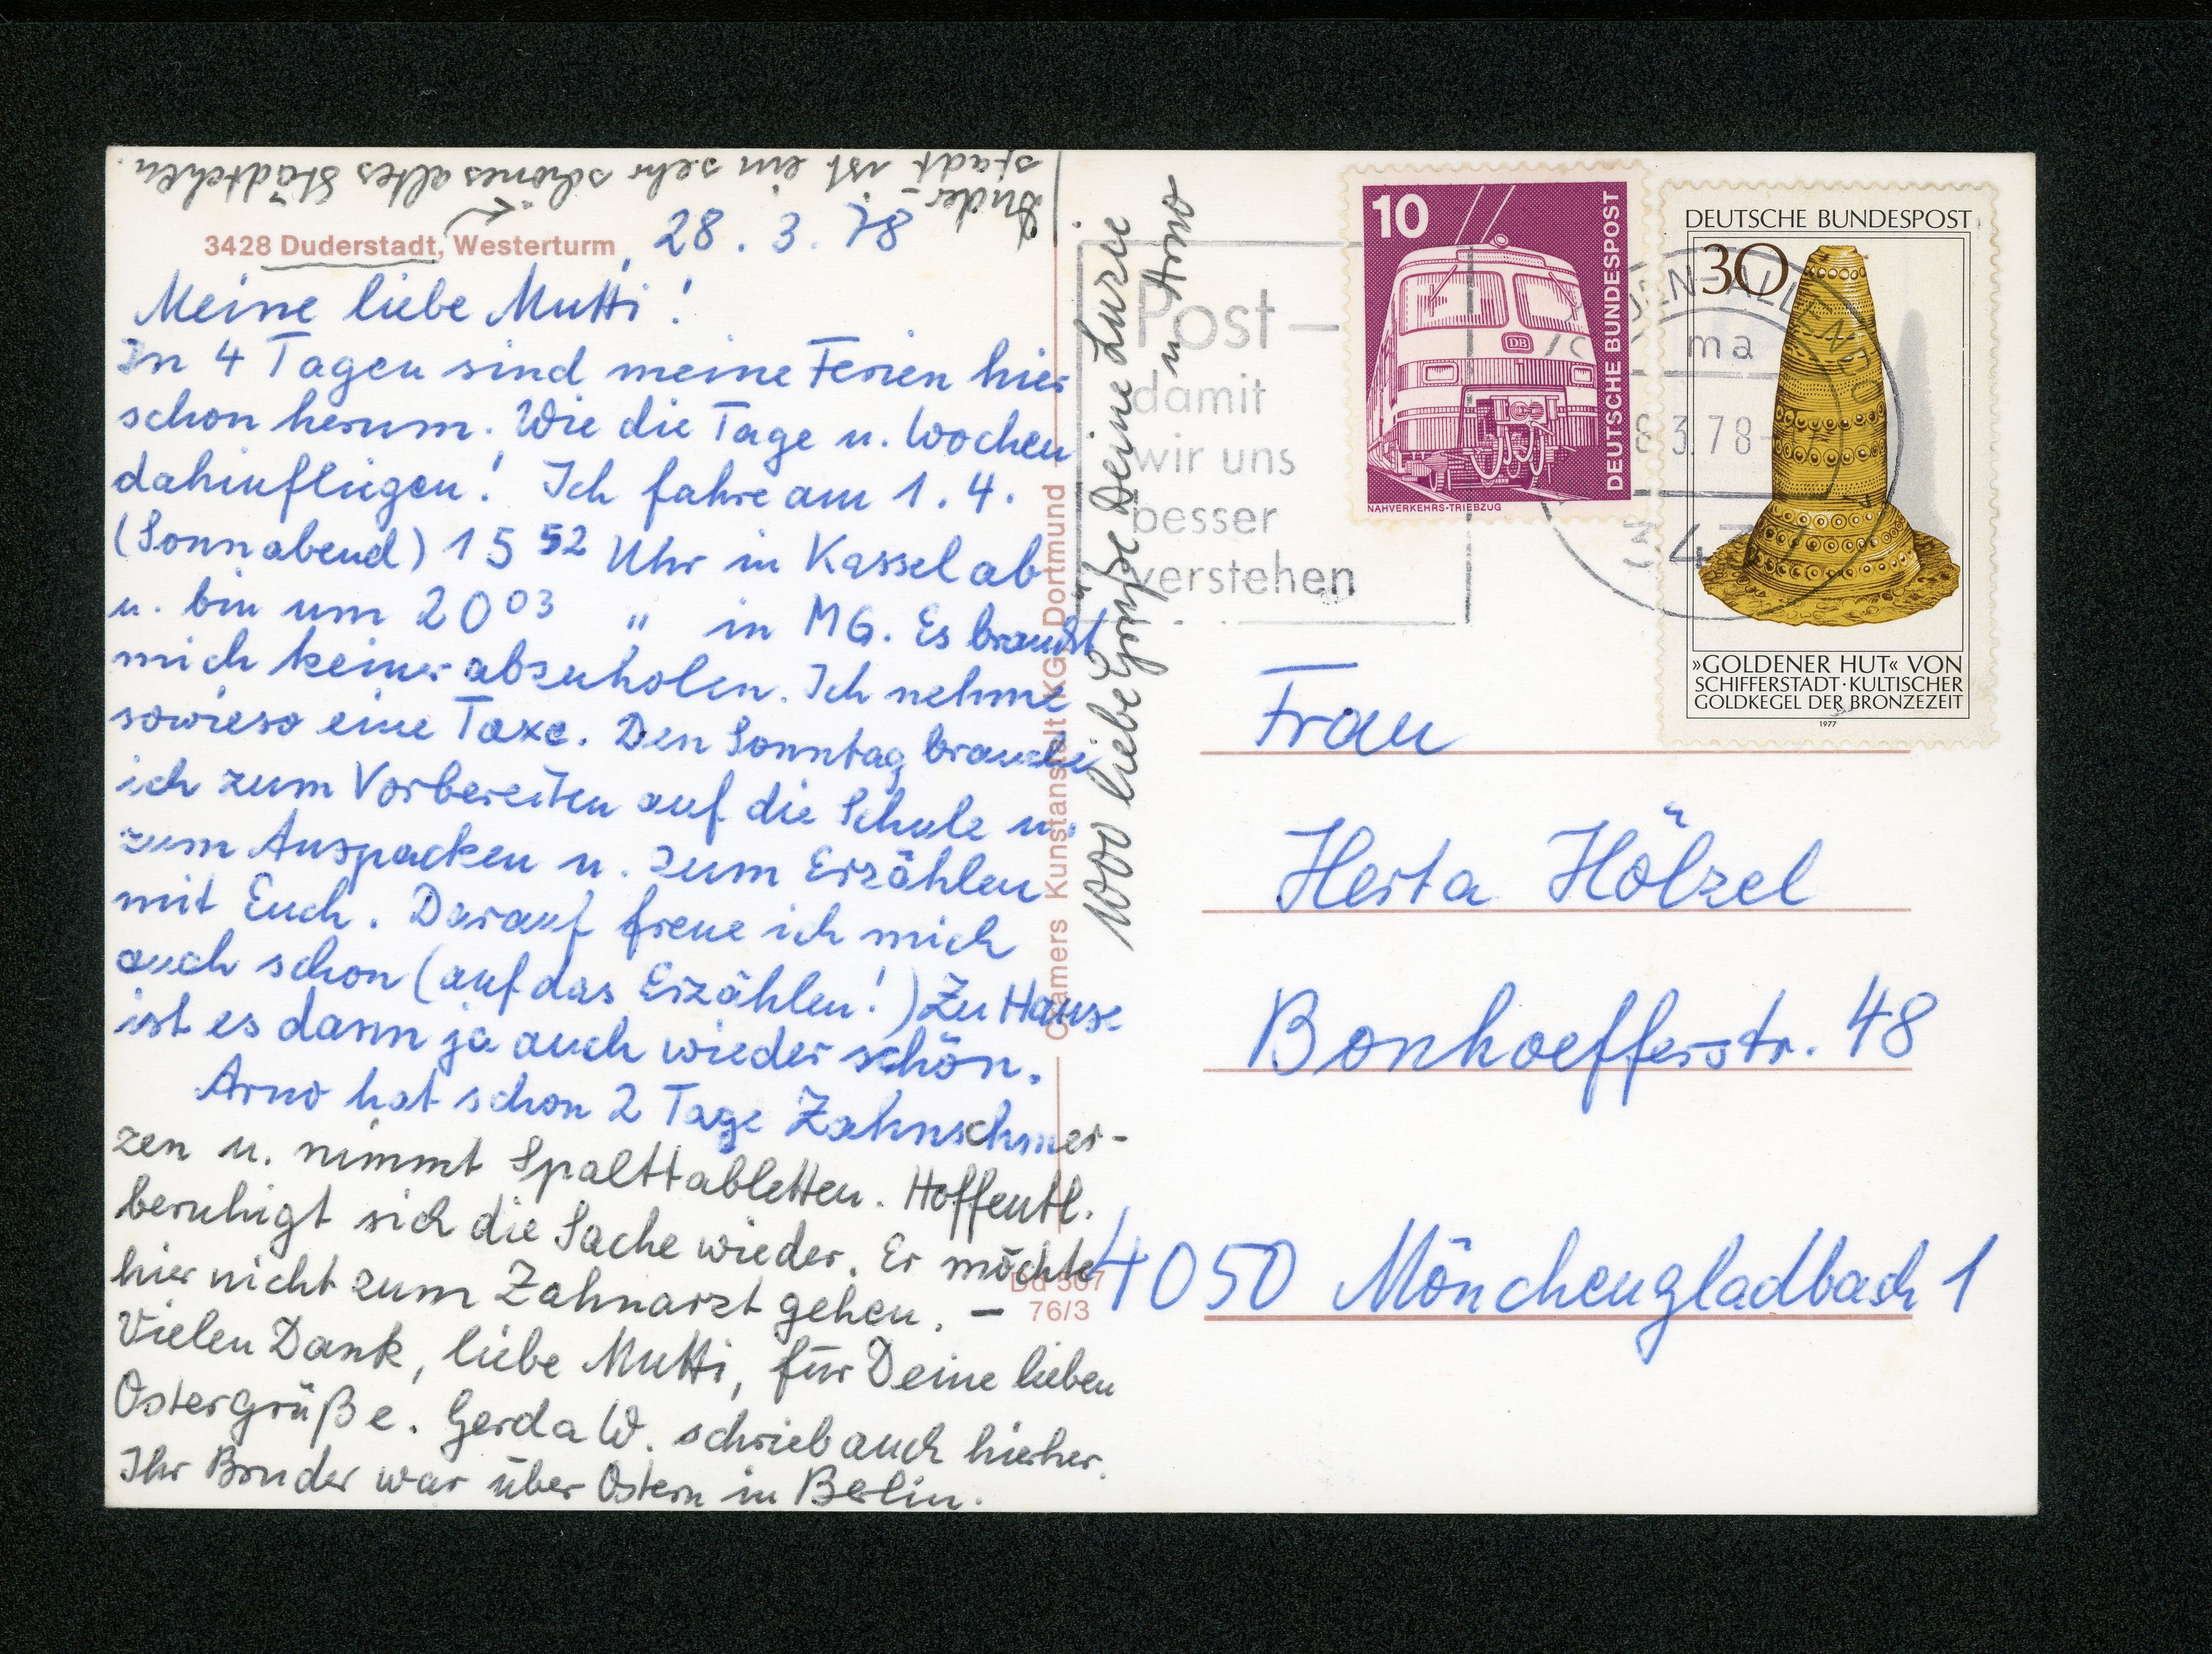 Duder-
stadt ist ein sehr schönes altes Städtchen.
3428 Duderstadt, Westerturm, 28. 3. 78
Meine liebe Mutti!
In 4 Tagen sind meine Ferien hier
schon herum. Wie die Tage u. Wochen
dahinfliegen! Ich fahre am 1. 4.
(Sonnabend) 15 52 Uhr in Kassel ab
u. bin um 20 03 " in MG. Es braucht
mich keiner abzuholen. Ich nehme
sowieso eine Taxe. Den Sonntag brauche
ich zum Vorbereiten auf die Schule u.
zum Auspacken u. zum Erzählen
mit Euch. Darauf freue ich mich
auch schon (auf das Erzählen!) Zu Hause
ist es dann ja auch wieder schön.
Arno hat schon 2 Tage Zahnschmer-
zen u. nimmt Spalttabletten. Hoffentl.
beruhigt sich die Sache wieder. Er möchte
hier nicht zum Zahnarzt gehen. –
Vielen Dank, liebe Mutti, für Deine lieben
Ostergrüße. Gerda W. schrieb auch hierher.
Ihr Bruder war über Ostern in Berlin.
1000 liebe Grüße Deine Luzie
u. Arno
Cramers Kunstanstalt KG Dortmund
Dd 507
76/3
Post-
damit
wir uns
besser
verstehen
10
DEUTSCHE BUNDESPOST
DB
NAHVERKEHRS-TRIEBZUG
DEUTSCHE BUNDESPOST
30
»GOLDENER HUT« VON
SCHIFFERSTADT·KULTISCHER
GOLDKEGEL DER BRONZEZEIT
1977
ma
3.78
Frau
Herta Hölzel
Bonhoefferstr. 48
4050 Mönchengladbach 1